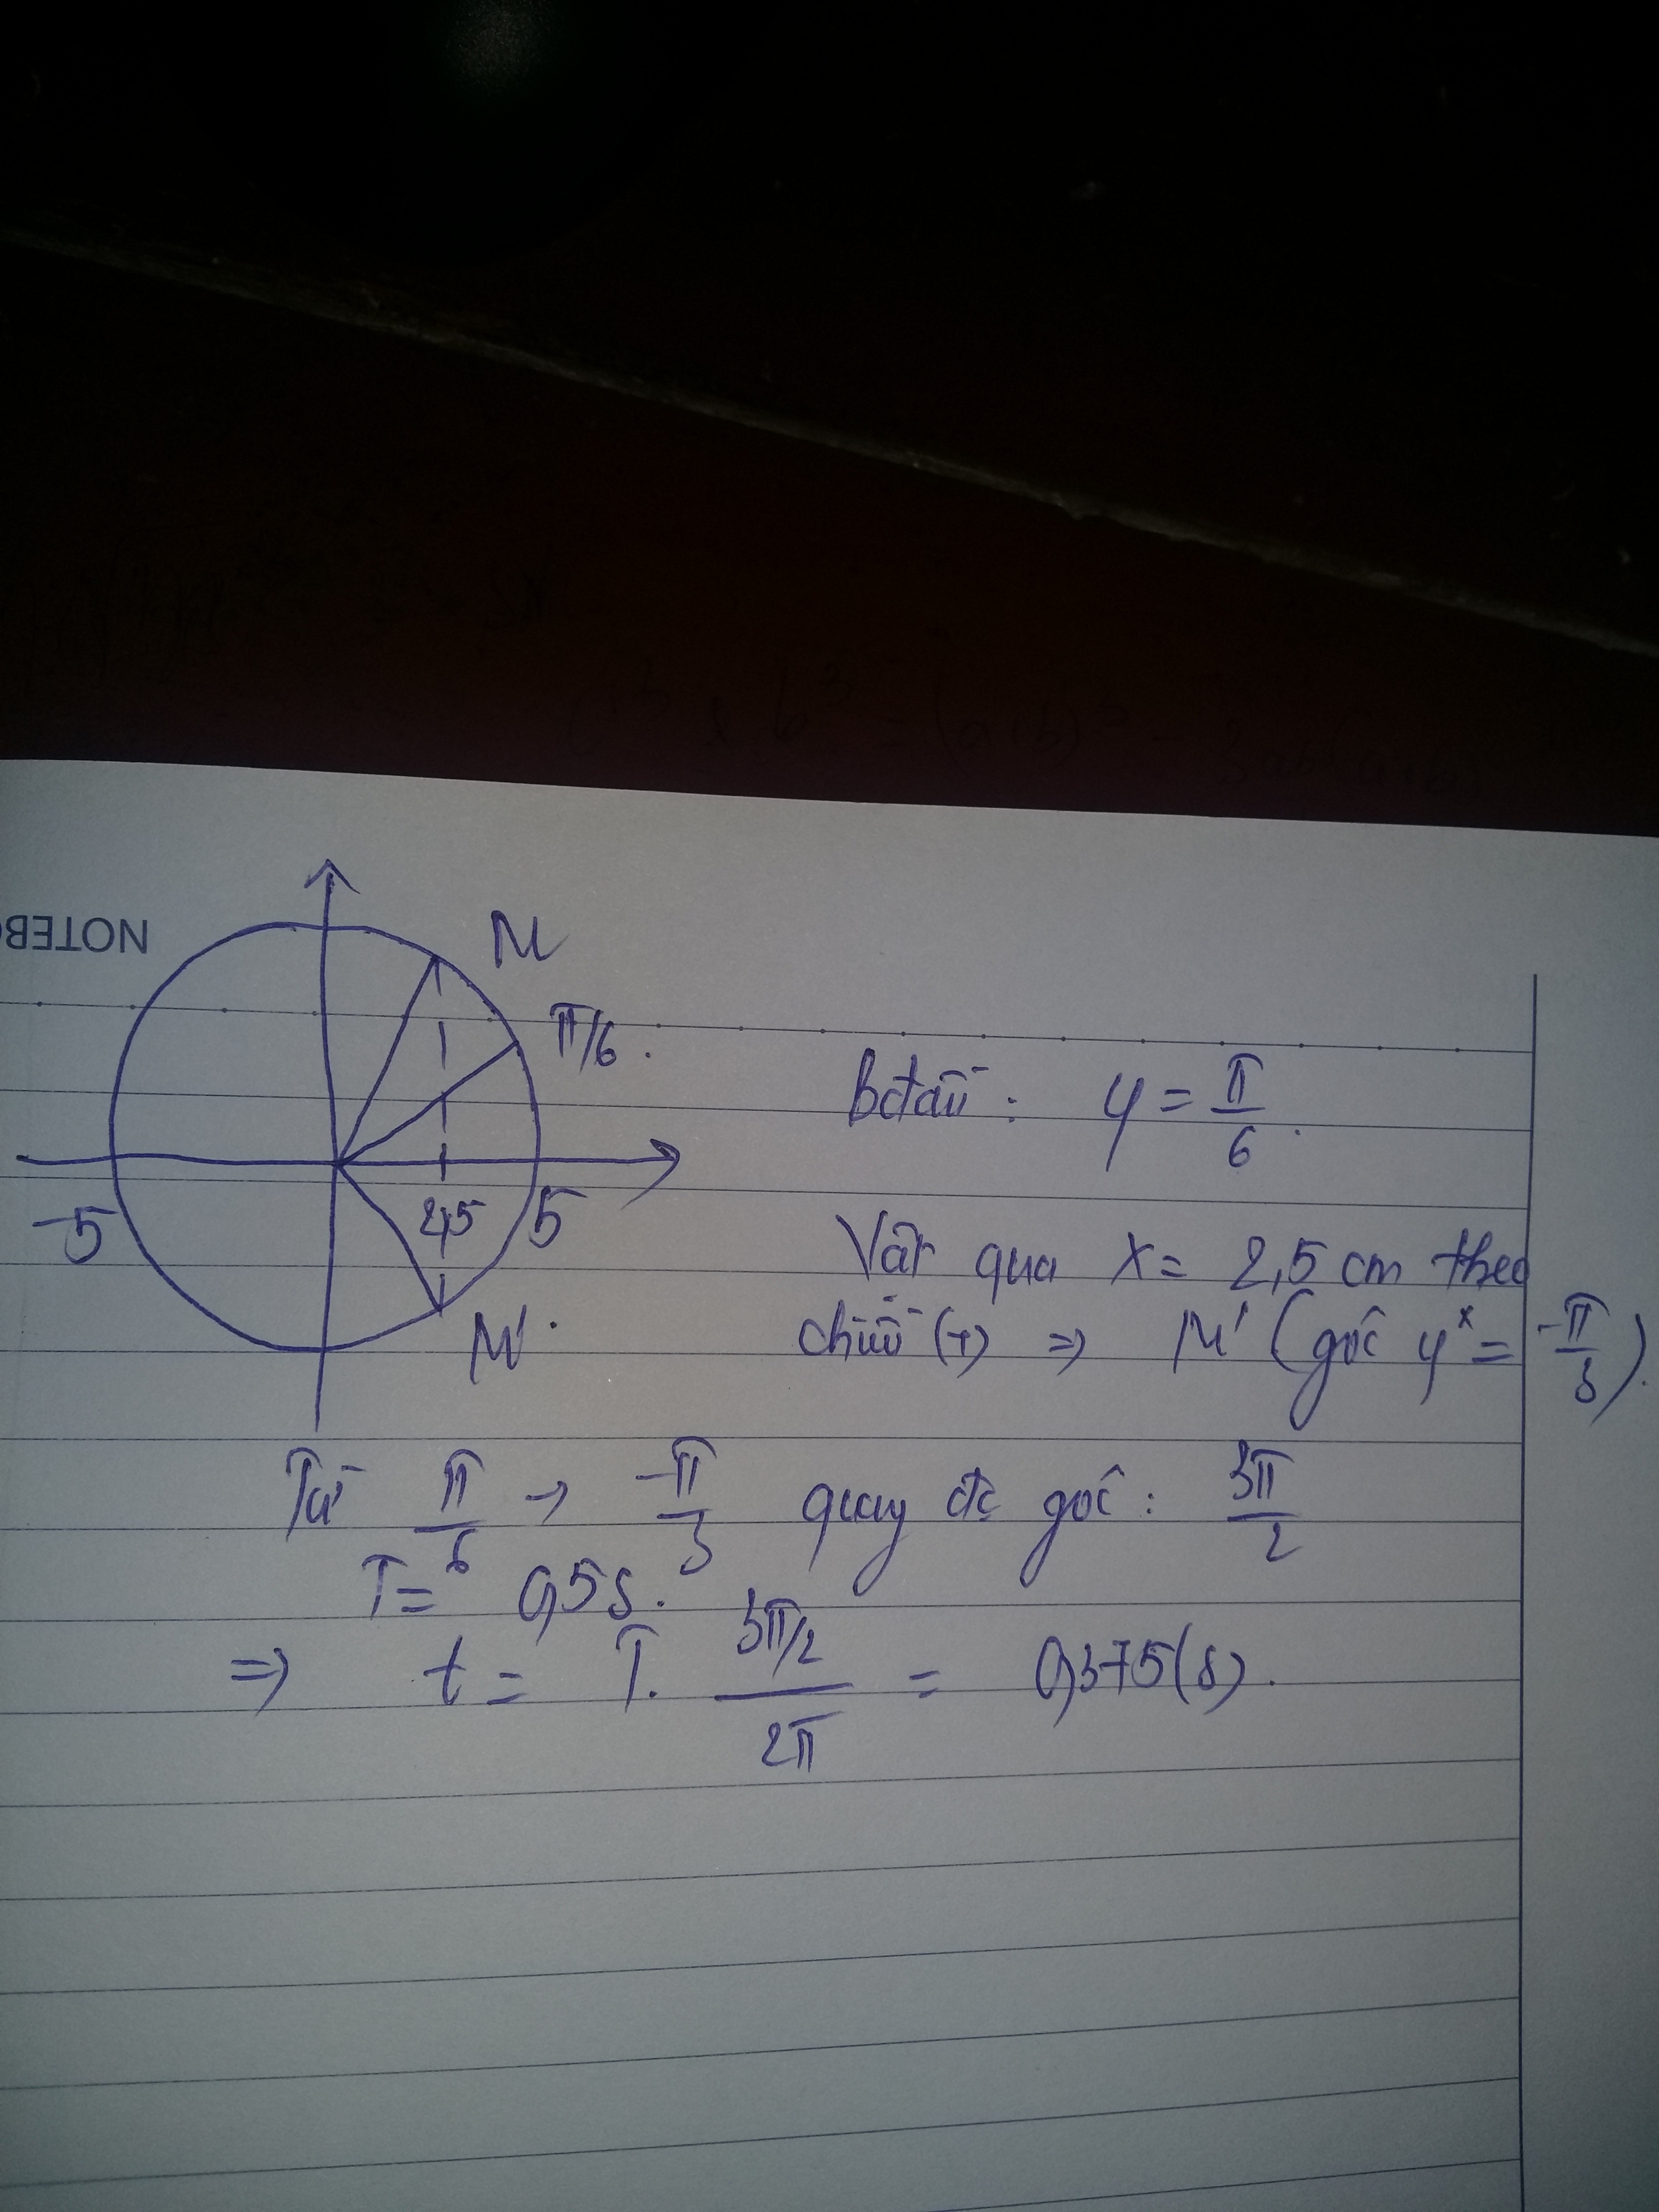 a³ + b³ = (a+b)³ - 3ab(a+b)
NOTEB
M
π/6.
-5
2,5
5
M'.
Bđầu: φ = π/6.
Vật qua x = 2,5 cm theo
chiều (+) => M' (góc φ* = -π/3).
Từ π/6 → -π/3 quay đc góc: 3π/2
T = 0,5s.
=> t = T. (3π/2)/(2π) = 0,375(s).